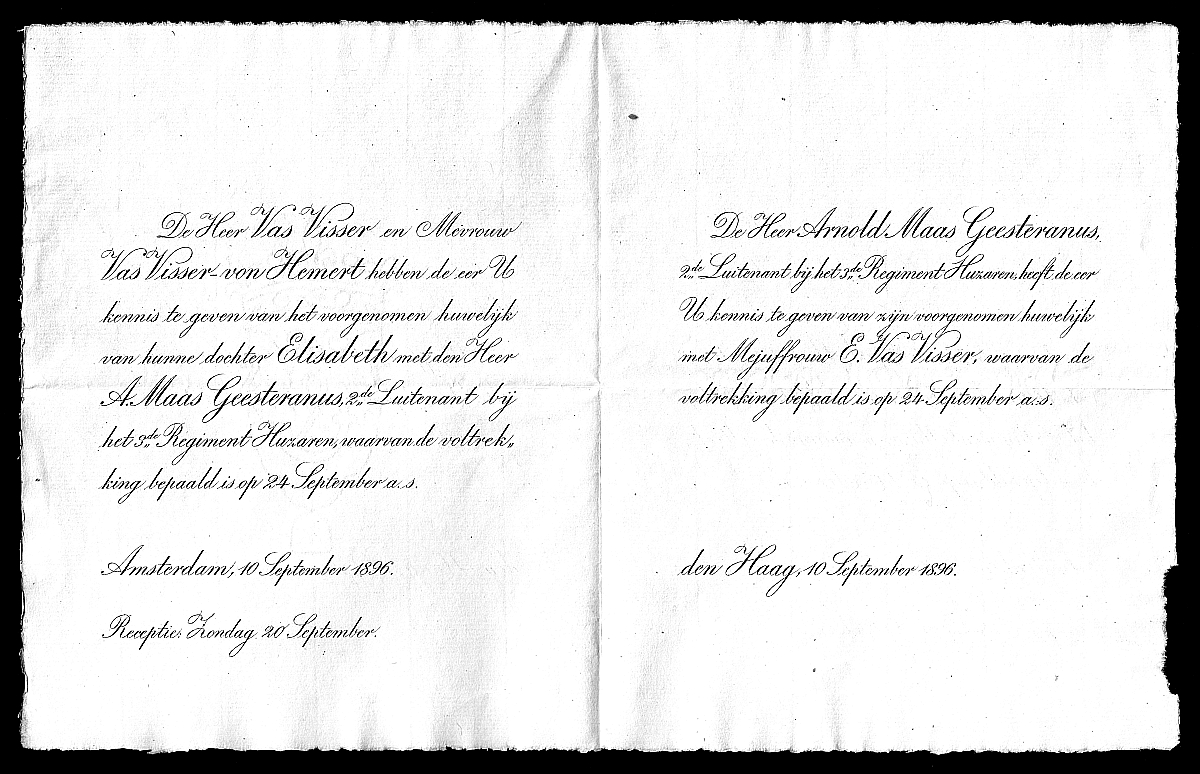 De Heer Vas Visser en Mevrouw
Vas Visser-von Hemert hebben de eer U
kennis te geven van het voorgenomen huwelijk
van hunne dochter Elisabeth met den Heer
A. Maas Geesteranus, 2de Luitenant bij
het 3de Regiment Huzaren, waarvan de voltrek„
king bepaald is op 24 September a.s.
Amsterdam, 10 September 1896.
Receptie: Zondag 20 September.
De Heer Arnold Maas Geesteranus,
2de Luitenant bij het 3de Regiment Huzaren, heeft de eer
U kennis te geven van zijn voorgenomen huwelijk
met Mejuffrouw E. Vas Visser, waarvan de
voltrekking bepaald is op 24 September a.s.
den Haag, 10 September 1896.